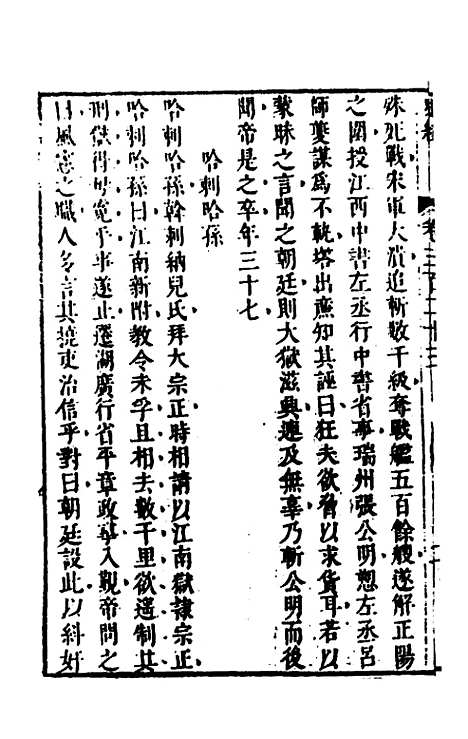 殊死戰宋軍大潰追斬數千級奪戰艦五百餘艘遂解正陽
之圍授江西中書左丞行中書省事瑞州張公明愬左丞呂
師夔謀為不軌塔出廉知其誣曰狂夫欲脅以求貨耳若以
蒙昧之言聞之朝廷則大獄滋興連及無辜乃斬公明而後
聞帝是之卒年三十七
哈剌哈孫
哈剌哈孫斡剌納兒氏拜大宗正時相請以江南獄隷宗正
哈剌哈孫曰江南新附教令未孚且相去數千里欲遥制其
刑獄得毋寃乎事遂止遷湖廣行省平章政事入覲帝問之
曰風憲之職人多言其撓吏治信乎對曰朝廷設此以糾奸